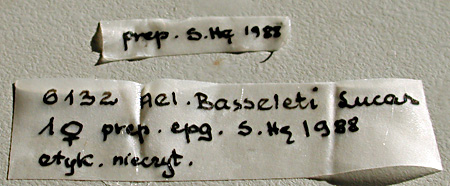 prep. S. Hę 1988
6132 Ael. Basseleti Lucas
1♀ prep. epg. S. Hę 1988
etyk. nieczyt.